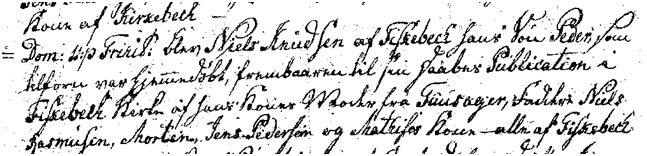 Kone af Kirkebech
Dom: 4 p Trinit: blev Niels Knudsen af Fiskebech hans Søn Peder, som
tilforn var hiemmedøbt, frembaaren til sin Daabes Publication i
Fiskebech Kirke af hans Kones Moder fra Tiusager, Faddere Niels
Rasmusen, Morten, Jens Pedersøn og Mathises Kone alle af Fiskebech